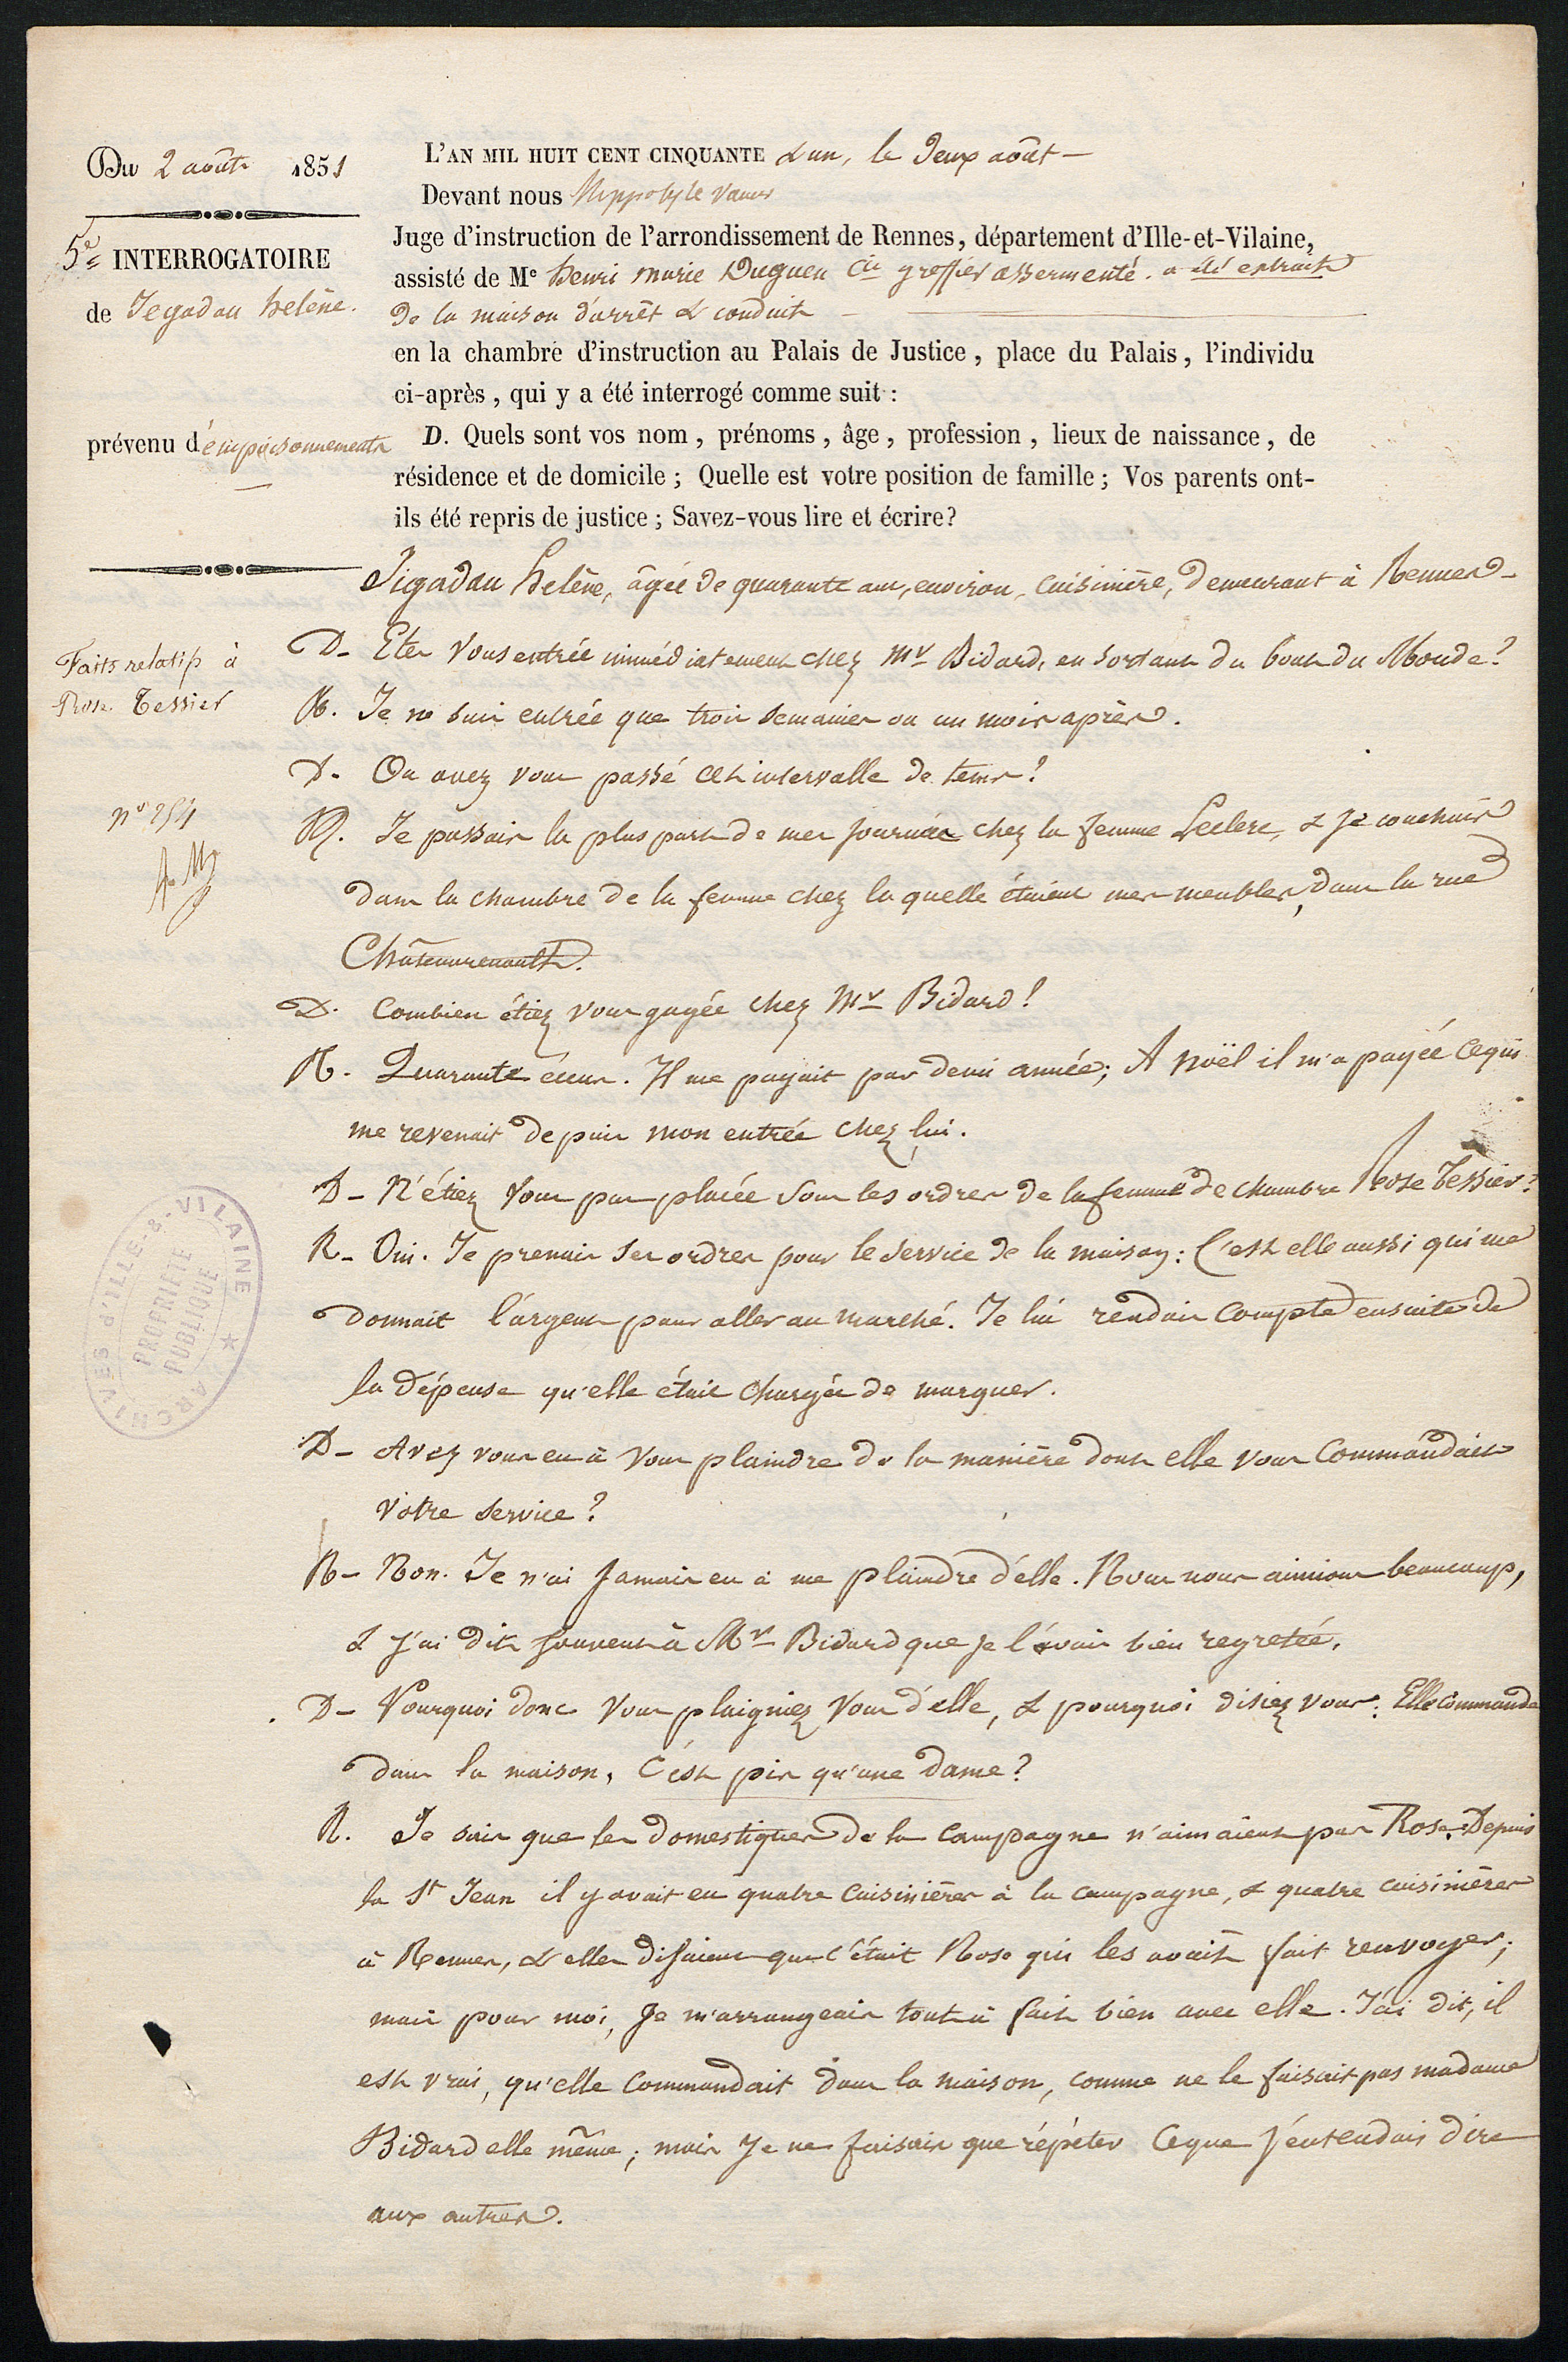 Du 2 août 1851
5e INTERROGATOIRE
de Jegadau helène.
prévenu d'empoisonnement
Faits relatifs à
Rose Tessier
n° 254
L'AN MIL HUIT CENT CINQUANTE & un, le deux août —
Devant nous hippolyte vannier
Juge d'instruction de l'arrondissement de Rennes, département d'Ille-et-Vilaine,
assisté de Me henri marie Duguen cis greffier assermenté. a été extraite
de la maison d'arrêt & conduite —
en la chambre d'instruction au Palais de Justice, place du Palais, l'individu
ci-après, qui y a été interrogé comme suit :
D. Quels sont vos nom, prénoms, âge, profession, lieux de naissance, de
résidence et de domicile ; Quelle est votre position de famille ; Vos parents ont-
ils été repris de justice ; Savez-vous lire et écrire?
Jégadau helène, âgée de quarante ans, environ, cuisinière, demeurant à Rennes –
D– Etes vous entrée immédiatement chez Mr Bidard, en sortant du bout du Monde?
R. Je ne suis entrée que trois semaines ou un mois après.
D. Ou avez vous passé cet intervalle de tems?
R. Je passais la plus part de mes journées chez la femme Leclerc, & je couchais
dans la chambre de la femme chez la quelle étaient mes meubles, dans la rue
Châteaurenault.
D. Combien étiez vous gagée chez Mr Bidard?
R. Quarante écus. Il me payait par demi année; A noël il m'a payée ce qui
me revenait depuis mon entrée chez lui.
D– N'étiez vous pas placée sous les ordres de la femme de chambre Rose Tessier?
R– Oui. Je prenais ses ordres pour le service de la maison: C'est elle aussi qui me
donnait l'argent pour aller au marché. Je lui rendais compte ensuite de
la dépense qu'elle était chargée de marquer.
D– Avez vous eu à vous plaindre de la manière dont elle vous commandait
votre service?
R– Non. Je n'ai jamais eu à me plaindre d'elle. Nous nous aimions beaucoup,
& j'ai dit souvent à Mr Bidard que je l'avais bien regretée.
D– Pourquoi donc vous plaigniez vous d'elle, & pourquoi disiez vous: Elle commande
dans la maison, c'est pis qu'une dame?
R. Je sais que les domestiques de la campagne n'aimaient pas Rose. Depuis
la St Jean il y avait eu quatre cuisinières à la campagne, & quatre cuisinières
à Rennes, & elles disaient que c'était Rose qui les avait fait renvoyer;
mais pour moi, je m'arrangeais tout à fait bien avec elle. J'ai dit, il
est vrai, qu'elle commandait dans la maison, comme ne le faisait pas madame
Bidard elle même; mais je ne faisais que répéter ce que j'entendais dire
aux autres.
ARCHIVES d'ILLE-&-VILAINE
PROPRIETE
PUBLIQUE